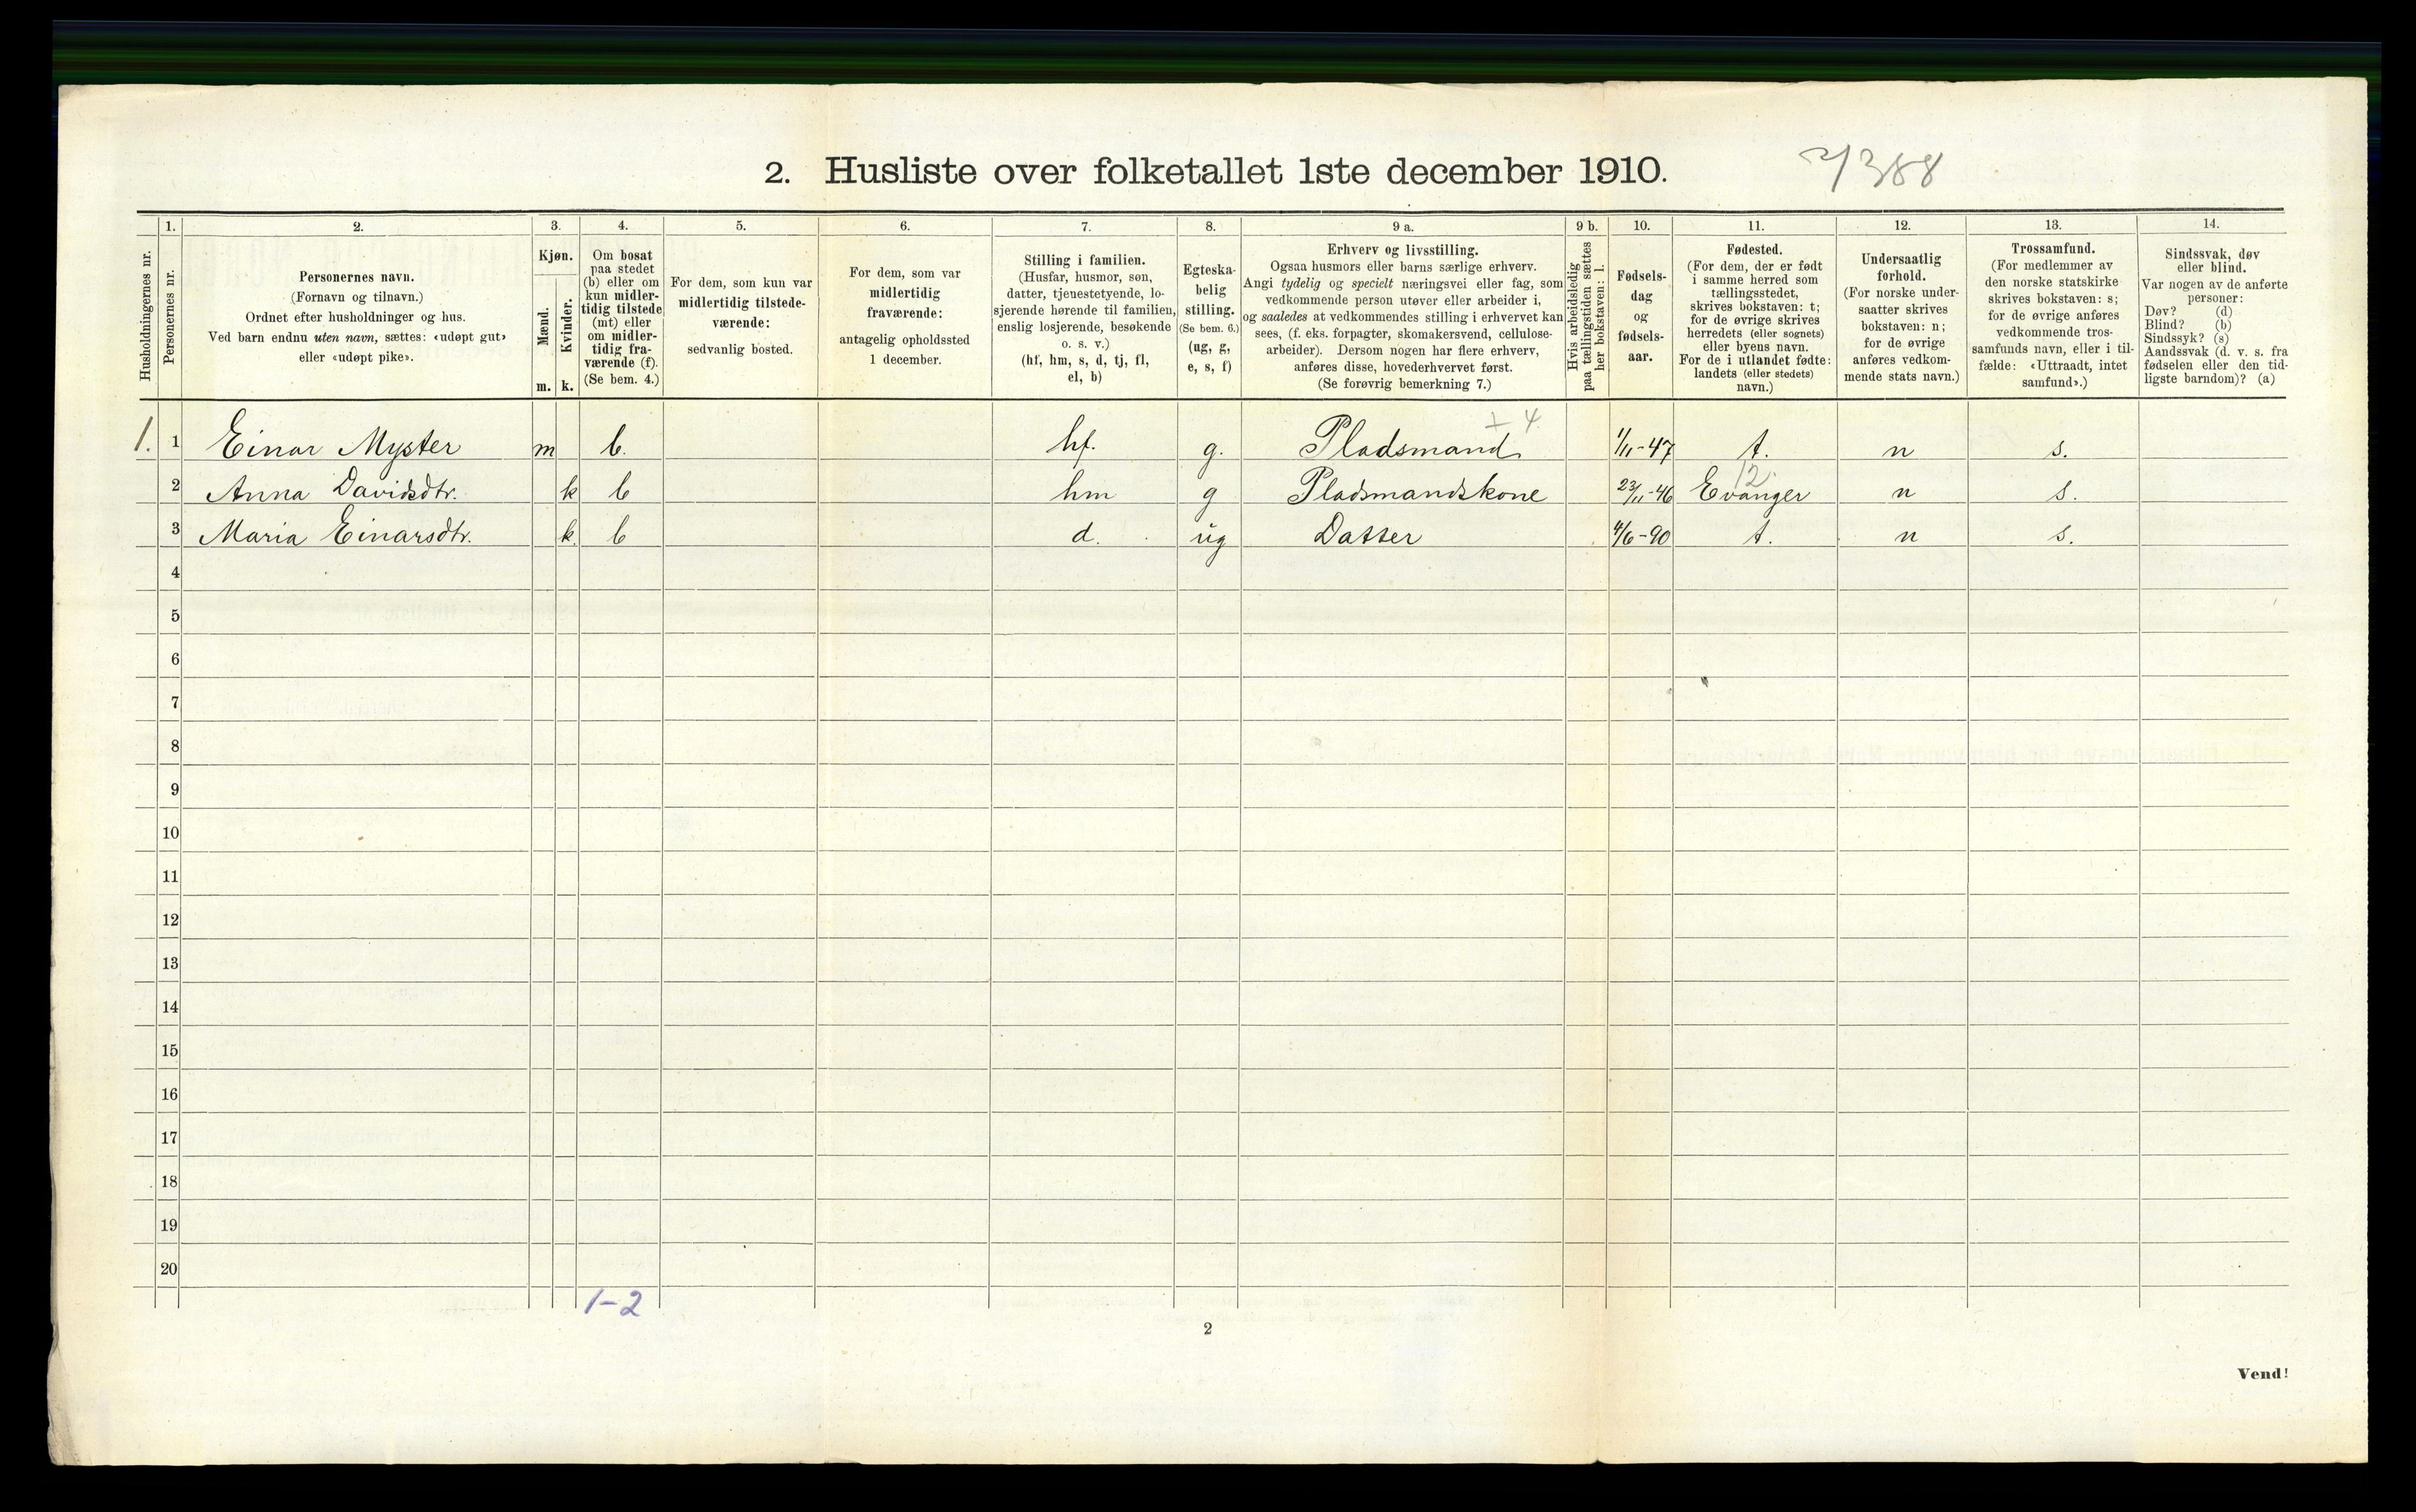 2. Husliste over folketallet 1ste december 1910.
2/388
Husholdningernes nr.
1.
Personernes nr.
2.
Personernes navn.
(Fornavn og tilnavn.)
Ordnet efter husholdninger og hus.
Ved barn endnu uten navn, sættes: «udøpt gut»
eller «udøpt pike».
3.
Kjøn.
Mænd.
m.
Kvinder.
k.
4.
Om bosat
paa stedet
(b) eller om
kun midler-
tidig tilstede
(mt) eller
om midler-
tidig fra-
værende (f).
(Se bem. 4.)
5.
For dem, som kun var
midlertidig tilstede-
værende:
sedvanlig bosted.
6.
For dem, som var
midlertidig
fraværende:
antagelig opholdssted
1 december.
7.
Stilling i familien.
(Husfar, husmor, søn,
datter, tjenestetyende, lo-
sjerende hørende til familien,
enslig losjerende, besøkende
o. s. v.)
(hf, hm, s, d, tj, fl,
el, b)
8.
Egteska-
belig
stilling.
(Se bem. 6.)
(ug, g,
e, s, f)
9 a.
Erhverv og livsstilling.
Ogsaa husmors eller barns særlige erhverv.
Angi tydelig og specielt næringsvei eller fag, som
vedkommende person utøver eller arbeider i,
og saaledes at vedkommendes stilling i erhvervet kan
sees, (f. eks. forpagter, skomakersvend, cellulose-
arbeider). Dersom nogen har flere erhverv,
anføres disse, hovederhvervet først.
(Se forøvrig bemerkning 7.)
9 b.
Hvis arbeidsledig
paa tællingstiden sættes
her bokstaven: l.
10.
Fødsels-
dag
og
fødsels-
aar.
11.
Fødested.
(For dem, der er født
i samme herred som
tællingsstedet,
skrives bokstaven: t;
for de øvrige skrives
herredets (eller sognets)
eller byens navn.
For de i utlandet fødte:
landets (eller stedets)
navn.)
12.
Undersaatlig
forhold.
(For norske under-
saatter skrives
bokstaven: n;
for de øvrige
anføres vedkom-
mende stats navn.)
13.
Trossamfund.
(For medlemmer av
den norske statskirke
skrives bokstaven: s;
for de øvrige anføres
vedkommende tros-
samfunds navn, eller i til-
fælde: «Uttraadt, intet
samfund».)
14.
Sindssvak, døv
eller blind.
Var nogen av de anførte
personer:
Døv? (d)
Blind? (b)
Sindssyk? (s)
Aandssvak (d. v. s. fra
fødselen eller den tid-
ligste barndom)? (a)
4
1. 1 Einar Myster m b. hf. g. Pladsmand 1/11-47 t. n s.
12
2 Anna Davidsdtr. k b hm g Pladsmandskone 23/11-46 Evanger n s.
3 Maria Einarsdtr. k b d. ug Datter 4/6-90 t. n s.
4
5
6
7
8
9
10
11
12
13
14
15
16
17
18
19
20
1-2
2
Vend!